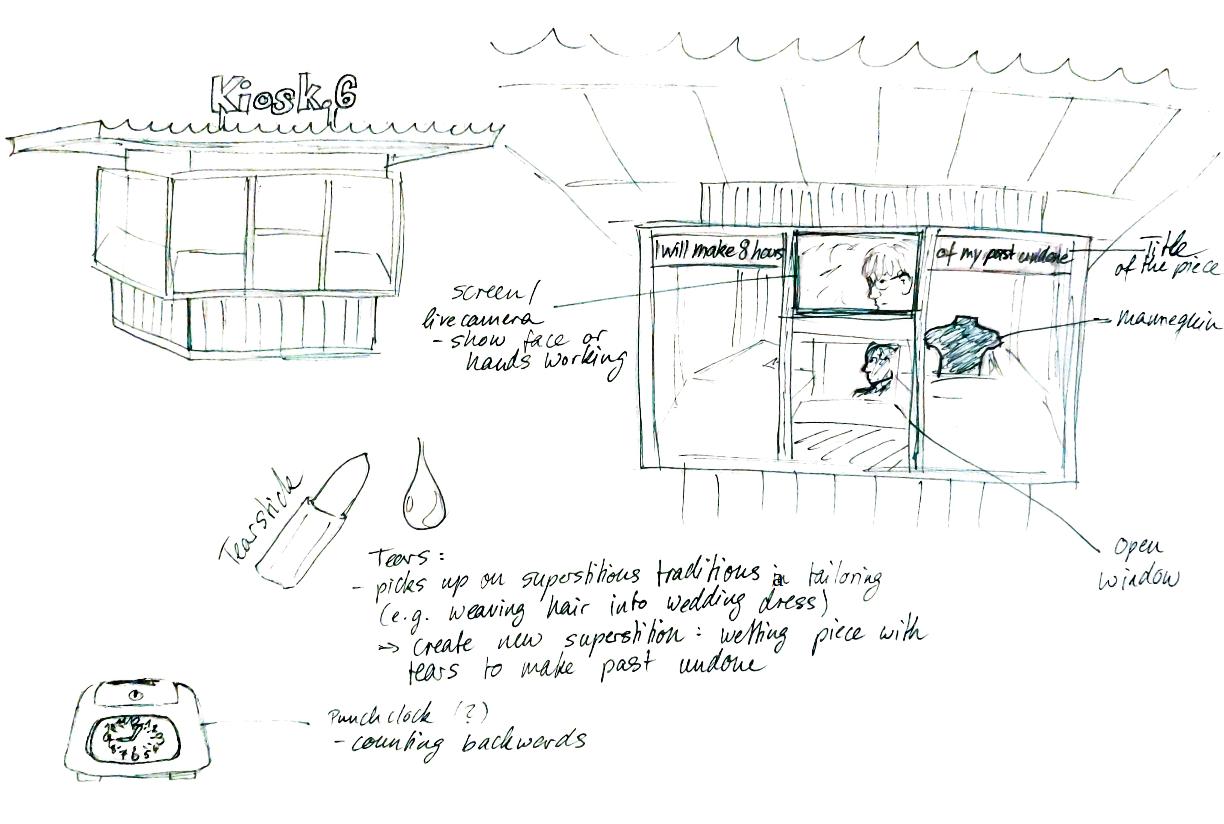 Kiosk.6
I will make 8 hours
of my past undone
Title
of the piece
mannequin
screen/
live camera
- show face or
hands working
open
window
Tearstick
Tears:
- picks up on superstitious traditions in tailoring
(e.g. weaving hair into wedding dress)
-> create new superstition: wetting piece with
tears to make past undone
Punch clock (?)
- counting backwards